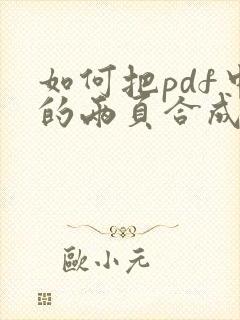 如何把pdf中
的兩頁合成
歐小元